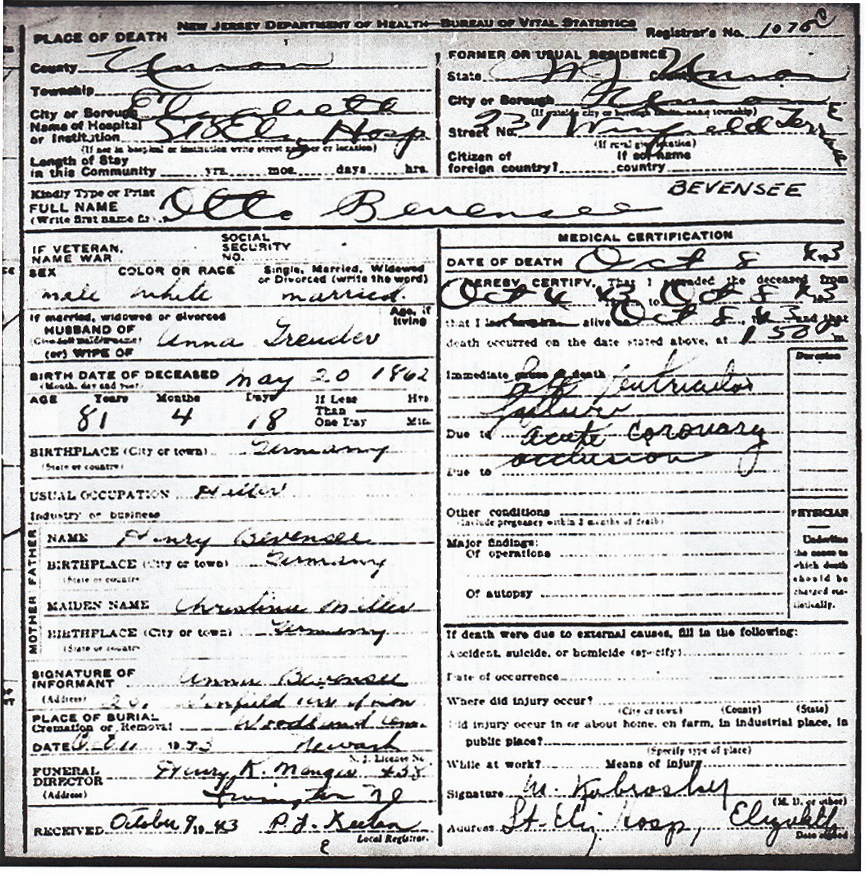 NEW JERSEY DEPARTMENT OF HEALTH—BUREAU OF VITAL STATISTICS
Registrar's No. 1075 C
PLACE OF DEATH
County Union
Township
City or Borough Elizabeth
Name of Hospital or Institution St Eliz Hosp
(If not in hospital or institution write street number or location)
Length of Stay in this Community yrs. mos. days hrs.
FORMER OR USUAL RESIDENCE
State N J County Union
City or Borough Union
(If outside city or borough limits name township)
Street No. 231 Winfield Terrace
(If rural give location)
Citizen of foreign country? If so name country
Kindly Type or Print
FULL NAME Otto Bevensee
(Write first name first)
BEVENSEE
IF VETERAN, NAME WAR
SOCIAL SECURITY NO.
SEX COLOR OR RACE Single, Married, Widowed or Divorced (write the word)
male white married
If married, widowed or divorced Age, if living
HUSBAND OF Anna Treuder
(or) WIFE OF
BIRTH DATE OF DECEASED May 20 1862
(Month, day and year)
AGE Years Months Days If Less Than One Day Hrs. Min.
81 4 18
BIRTHPLACE (City or town) Germany
(State or country)
USUAL OCCUPATION
Industry or business
FATHER
NAME Henry Bevensee
BIRTHPLACE (City or town) Germany
(State or country)
MOTHER
MAIDEN NAME Christina Miller
BIRTHPLACE (City or town) Germany
(State or country)
SIGNATURE OF INFORMANT Anna Bevensee
(Address) Winfield Union
PLACE OF BURIAL
Cremation or Removal Woodland Cem.
DATE Oct 11 1943 Newark
N. J. License No.
FUNERAL DIRECTOR Henry K. 438
(Address) Irvington NJ
RECEIVED October 9 1943 P.J.
Local Registrar.
MEDICAL CERTIFICATION
DATE OF DEATH Oct 8 43
I HEREBY CERTIFY, That I attended the deceased from
Oct 4 43 to Oct 8 43
that I last saw him alive Oct 8 43 and that
death occurred on the date stated above, at 1 50 P m
Duration
Immediate cause of death Left Ventricular
failure
Due to acute coronary
occlusion
Due to
Other conditions
(Include pregnancy within 3 months of death)
Major findings:
Of operations
Of autopsy
PHYSICIAN
Underline the cause to which death should be charged statistically.
If death were due to external causes, fill in the following:
Accident, suicide, or homicide (specify)
Date of occurrence
Where did injury occur?
(City or town) (County) (State)
Did injury occur in or about home, on farm, in industrial place, in
public place?
(Specify type of place)
While at work? Means of injury
Signature M.
(M. D. or other)
Address St. Eliz Hosp, Elizabeth
Date signed